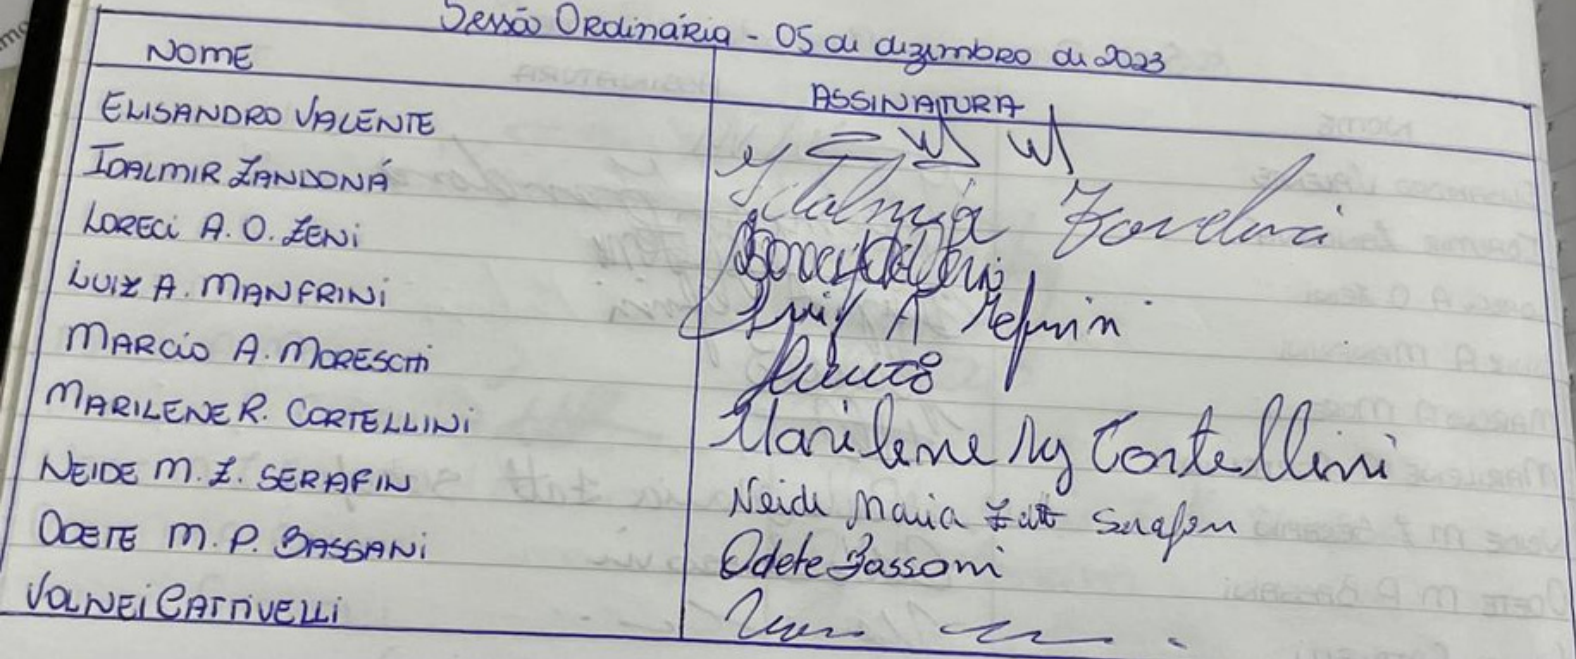 Sessão Ordinária - 05 de dezembro de 2023
NOME ASSINATURA
ELISANDRO VALENTE
IDALMIR ZANDONÁ Idalmir Zandoná
LORECI A. O. ZENI
LUIZ A. MANFRINI Luiz A
MARCIO A. MORESCHI
MARILENE R. CORTELLINI Marilene Cortellini
NEIDE M. Z. SERAFIN Neide Maria Zatt Serafin
ODETE M. P. BASSANI Odete Bassani
VOLNEI CATTIVELLI